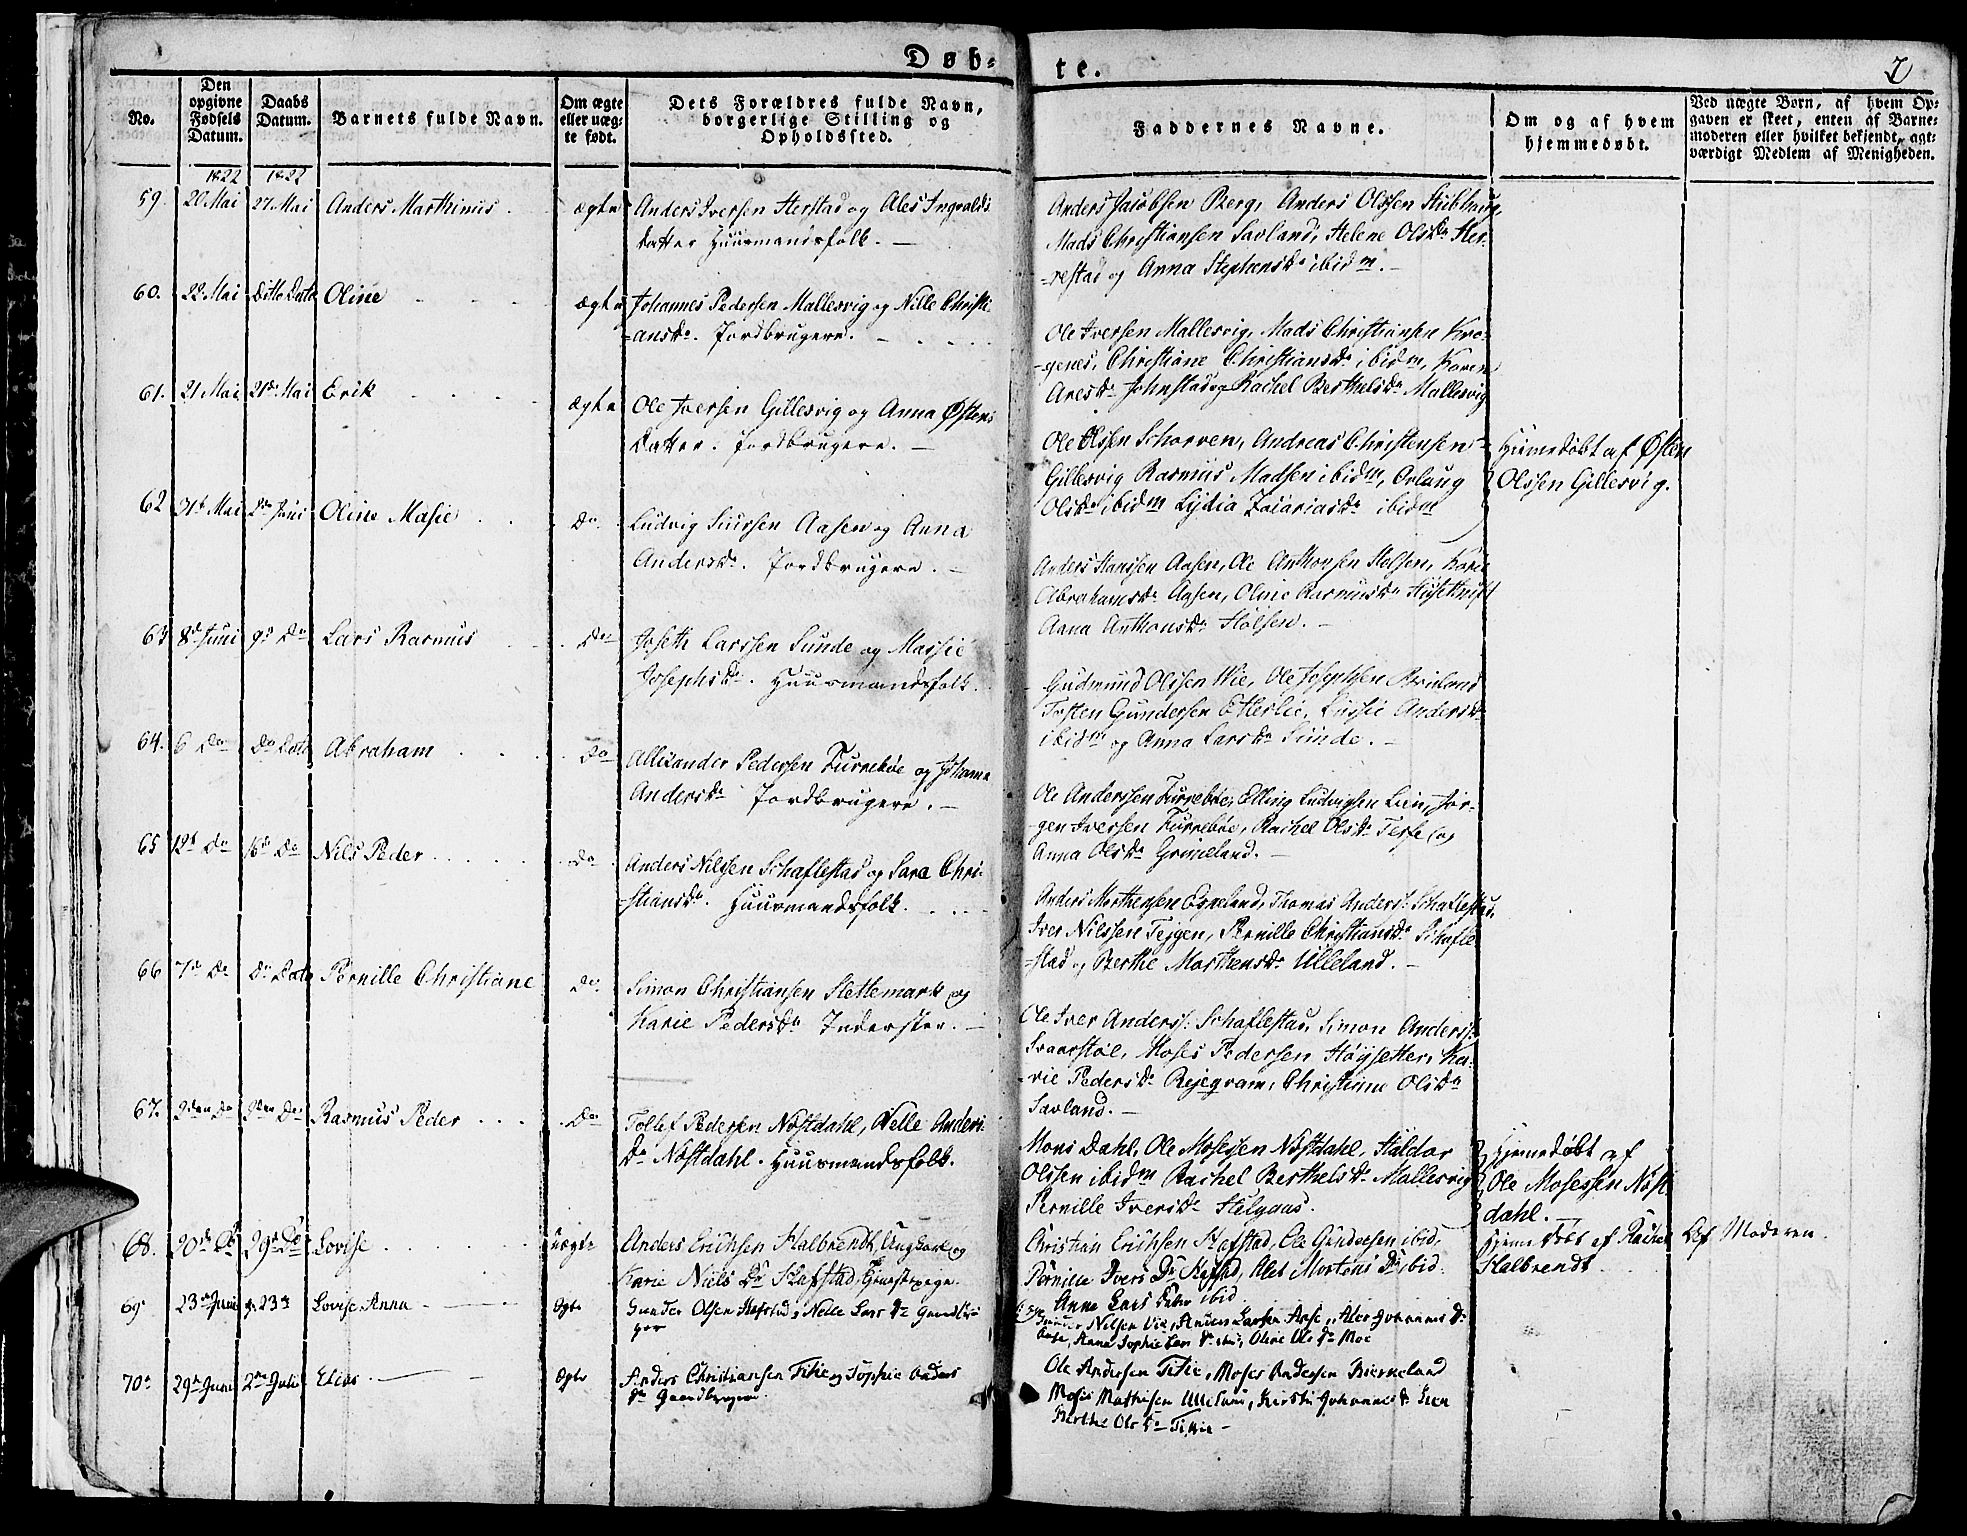 Døb-
te.
7
No.
Den opgivne Fødsels Datum.
Daabs Datum.
Barnets fulde Navn.
Om ægte eller uæg-te født.
Dets Forældres fulde Navn, borgerlige Stilling og Opholdssted.
Faddernes Navne.
Om og af hvem hjemmedøbt.
Ved uægte Børn, af hvem Op-
gaven er skeet, enten af Barne-
moderen eller hvilket bekjendt, agt-
værdigt Medlem af Menigheden.
1822 1822
59. 20 Mai 27 Mai Anders Marthinus ægte Anders Iversen Herstad og Ales Ingvalds
datter Huusmandsfolk.
Anders Jacobsen Berg, Anders Olssen
Mads Christiansen Savland, Helene Olsda Her-
-restad og Anna Stephensda ibidm.
60. 22 Mai Ditto Dato Oline ægte Johannes Pedersen Mallesvig og Nille Christi-
-ansda. Jordbrugere.
Ole Iversen Mallesvig, Mads Christiansen Kro-
-genes, Christiane Christiansda ibidm, Karen
Aresda Johnstad og Rachel Berthelsda Mallesvig
61. 21 Mai Mai Erik ægte Ole Iversen Gillesvig og Anna Østens
datter. Jordbrugere.
Ole Olssen Schorven, Andreas Christensen
Gillesvig Rasmus Madsen ibidm, Orlaug
Olsda ibidm Lydia Zaiariasda ibidm
Hjemedøbt af Østen
Olssen Gillesvig.
62 31t Mai 2de Juni Oline Masie Do. Ludvig Siurssen Aasen og Anna
Andersda. Jordbrugere.
Anders Hanssen Aasen, Ole Anthonsen Stølsen, Karie
Abrahamsda Aasen, Oline Rasmusda
Anna Anthonsda Stølsen.
63 8d Juni 9d Do Lars Rasmus Do Joseth Larssen Sunde og Massie
Josephsda. Huusmandsfolk.
Gudmund Olssen Wie, Ole Josephsen
Tosten Gundersen Etterlie, Lussie Andersda
ibidm og Anna Larsda Sunde.
64. 6 Do Do Dato Abraham Do Allixander Pedersen Furrebøe og Johanna
Andersda Jordbrugere.
Ole Anderssen Furrebøe, Elling Ludvigsen Lien, Jør-
-gen Iversen Furrebøe, Rachel Olsda Tesse og
Anna Olsda Grimeland.
65 12t Do 16d Do Nils Peder Do Anders Nilssen Schaflestad og Sara Chri-
-stiansda. Huusmandsfolk.
Anders Morthensen Egneland, Thomas Anders: Schaflestad,
Iver Nilssen Tejgen, Pernille Christiansda Schafle-
-stad og Berthe Morthensda Ulleland.
66 7d Do Do Dato Pernille Christiane Do Simon Christiansen Slettemark og
Karie Pedersda Inderster.
Ole Iver Anderss: Schaflestad, Simon Anderss:
Svaarstøl, Moses Pedersen Høysetter, Ka-
-rie Pedersda Rejeqvam, Christine Olsda
Savland.
67. 2den Do 2den Do Rasmus Peder Do Tollef Pedersen Næstdahl, Nelle Anders
da Næstdahl. Huusmandsfolk.
Mons Dahl, Ole Mosessen Næstdahl, Haldor
Olssen ibidm Rachel Berthelsda Mallesvig
Pernille Iversda Helgaas.
Hjemedøbt af
Ole Mosessen Næst-
dahl.
68. 20d Do 29d Do Lovise uægte Anders Erichsen Halbrendt, Ungkarl og
Karie Niels Dr Hafstad,
Christian Erichsen Hafstad, Ole Gundersen ibid,
Pernille Ivers Dr Hafstad, Alet Mortens Dr ibid.
Anne Lars Datter ibid
Hjemedøbt af Rachel
Halbrendt
Af Moderen.
69 23 Juni 23 Lovise Anna Ægte Gunder Olsen Hafstad, Nelle Lars Dr
Gunder Nilsen Vie, Anders Larsen Aase, Ales Johannes Dr
Aase, Anna Sophie Lars Dr, Oline Ols Dr Moe
70 29 Juni 2 Juli Elias Ægte Anders Christiansen Titie og Sophie Anders
Dr Gaardbruger
Ole Andersen Titie, Moses Andersen Birkeland
Moses Mathisen Ulleland, Kirsti Johannes Dr
Berthe Ols Dr Titie